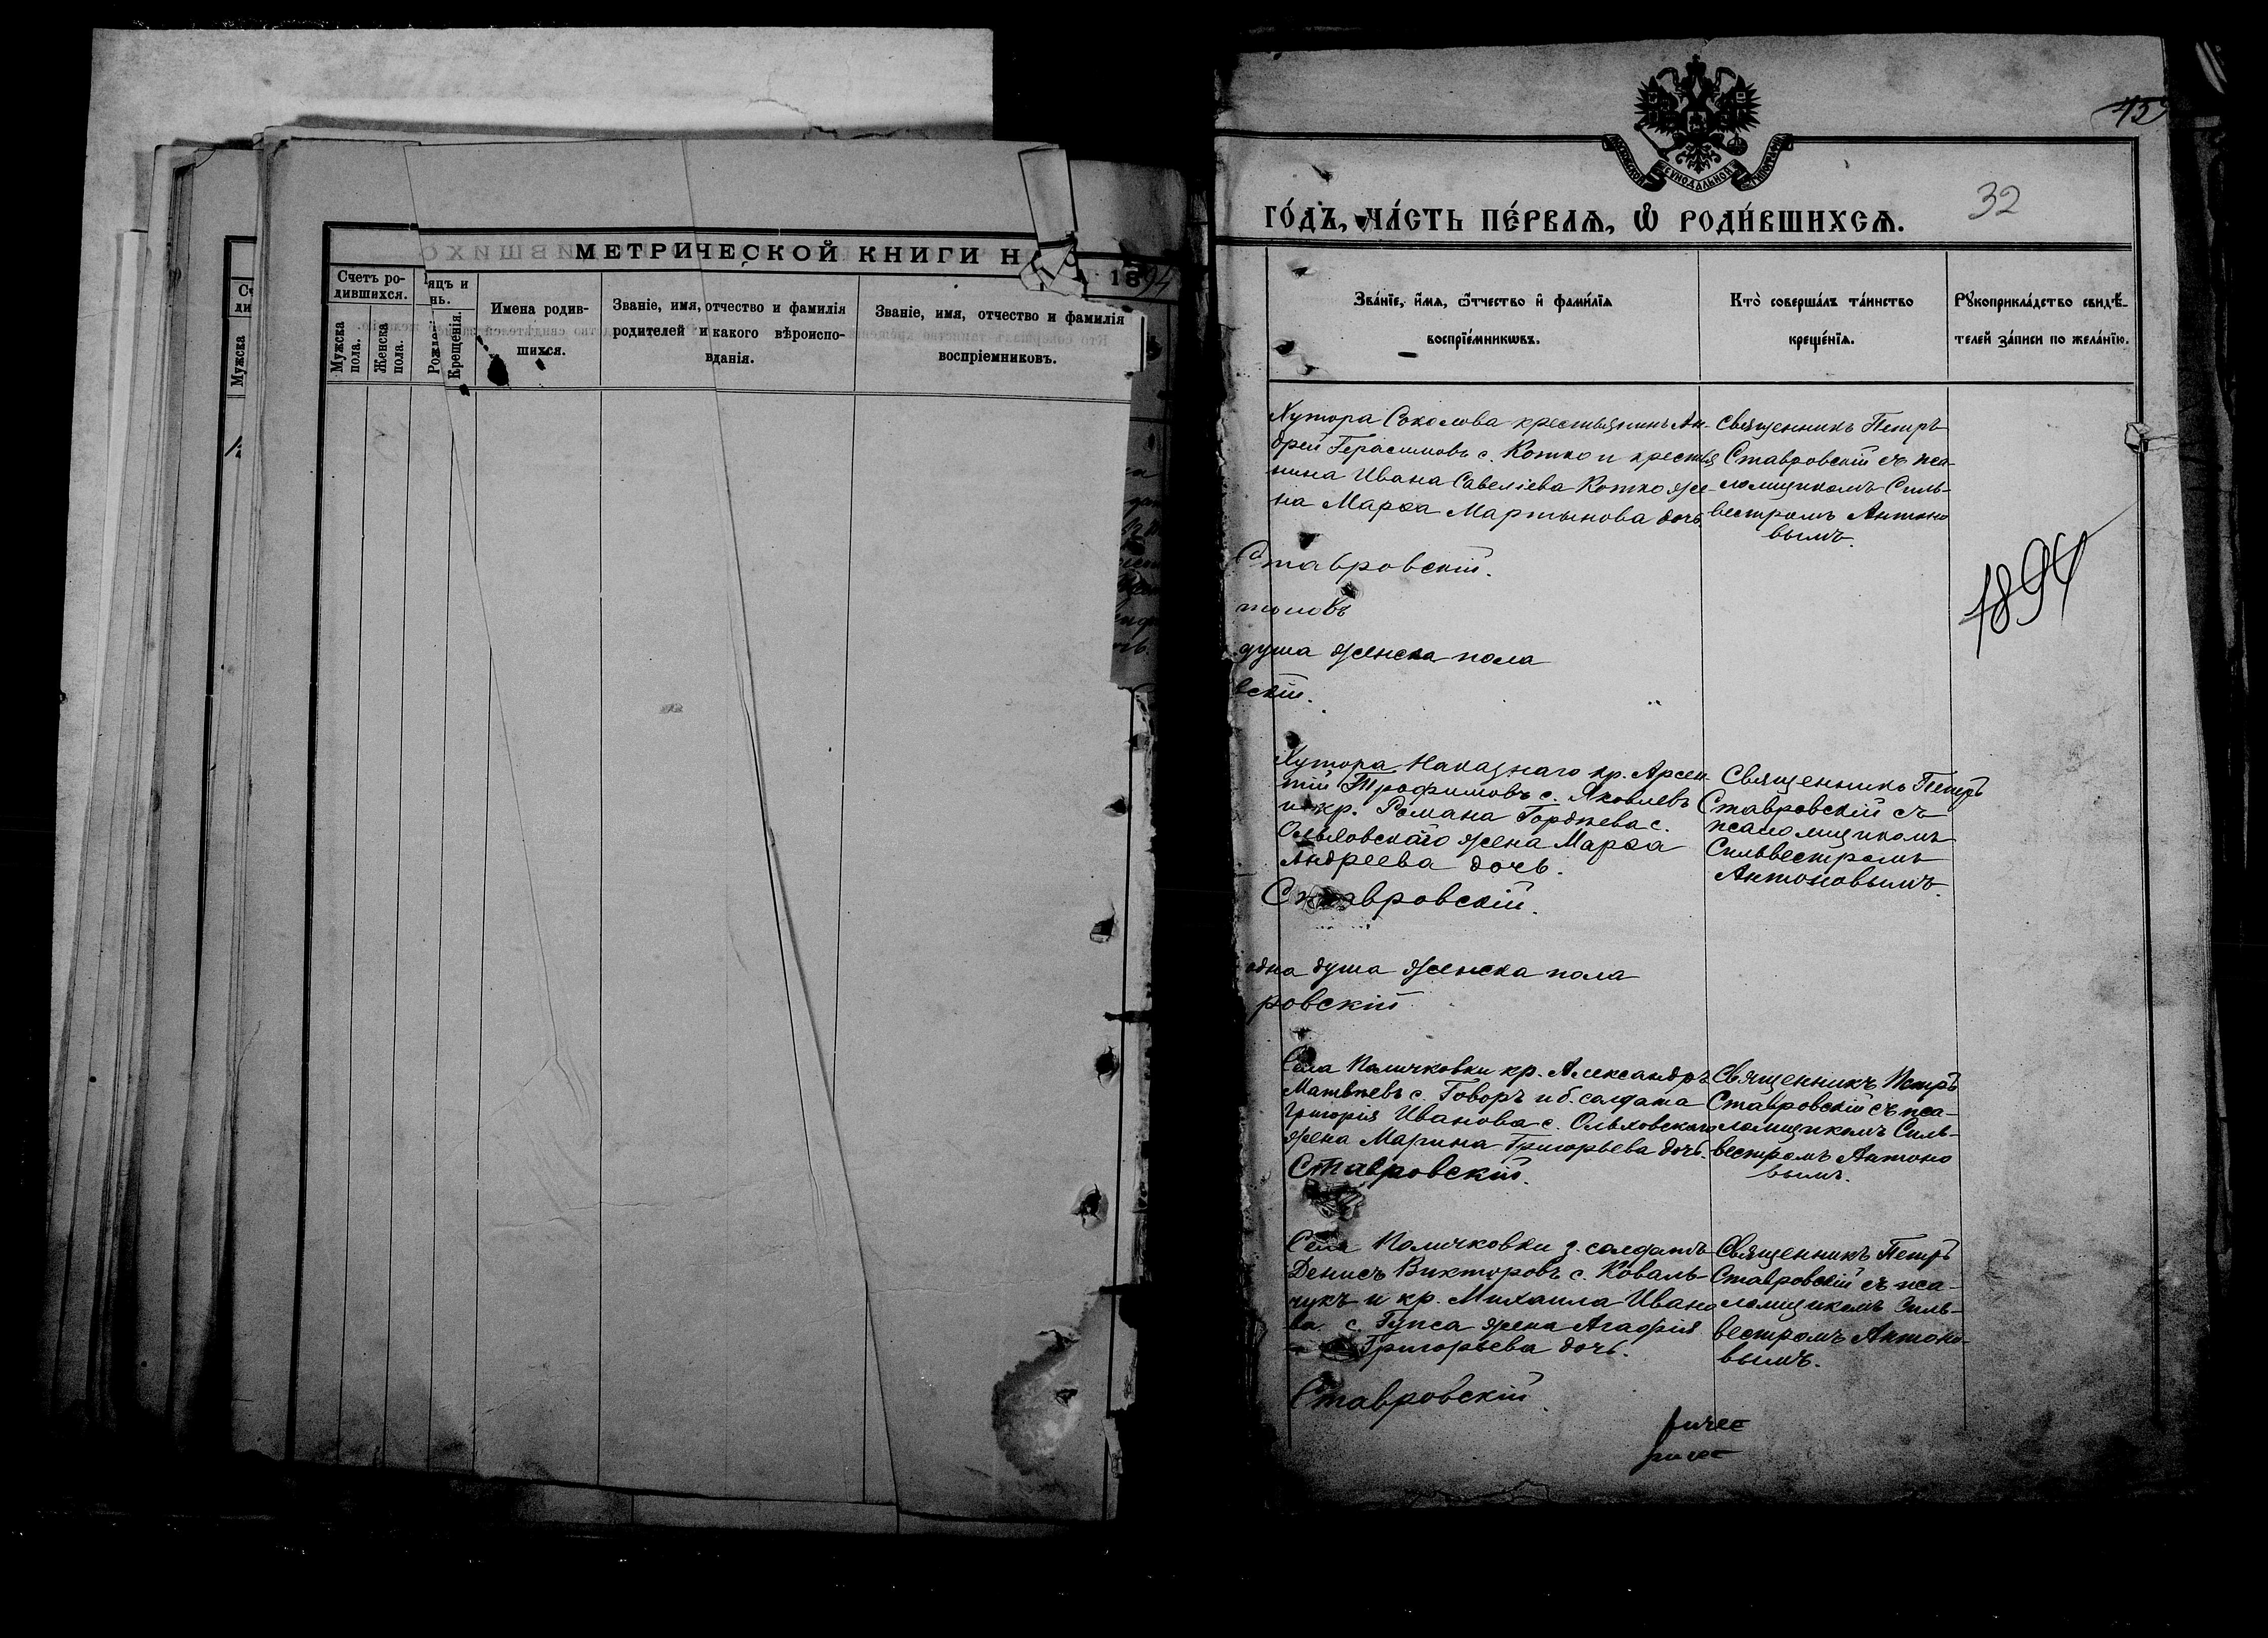 МЕТРИЧЕСКОЙ КНИГИ Н
1894
Счетъ ро-
дившихся.
Мужска
пола.
Женска
пола.
яцъ и
нь.
Рожде
Крещенія.
Имена родив-
шихся.
Званіе, имя, отчество и фамилія
родителей и какого вѣроиспо-
вданія.
Званіе, имя, отчество и фамилія
воспріемниковъ.
Мужска
МОСКОВСКОЙ СѴНОДАЛЬНОЙ ТИПОГРАФІИ
32
ГО́ДЪ, ЧА́СТЬ ПЕ́РВАѦ, Ѽ РОДИ́ВШИХСѦ.
Зва́нїе, и́мѧ, ѿтчество и фами́лїѧ
воспрїе́мникѡвъ.
Кто̀ соверша́лъ та́инство
креще́нїѧ.
Рꙋкоприкла́дство свидѣ́-
телей за́писи по жела́нїю.
Хутора Соколова крестьянинъ Ан-
дрей Герасимовъ с. Котко и крестья
нина Ивана Савеліева Котко же-
на Марѳа Мартынова дочь.
Священникъ Петръ
Ставровскій съ пса-
ломщикомъ Силь-
вестромъ Антоно
вымъ.
Ставровскій.
тоновъ
душа женска пола
вскій.
1894
Хутора Наказнаго кр. Арсен-
тій Трофимовъ с. Яковлевъ
и кр. Романа Гордѣева с.
Ольховскаго жена Марѳа
Андреева дочь.
Священникъ Петръ
Ставровскій съ
псаломщикомъ
Сильвестромъ
Антоновымъ.
Ставровскій.
одна душа женска пола
ровскій
Села Паличковки кр. Александръ
Матвѣевъ с. Говоръ и б. солдата
Григорія Иванова с. Ольховскаго
жена Марина Григорьева дочь.
Священникъ Петръ
Ставровскій съ пса-
ломщикомъ Силь-
вестромъ Антоно
вымъ.
Ставровскій.
Села Паличковки з. солдатъ
Денисъ Викторовъ с. Коваль-
чукъ и кр. Михаила Ивано
ва с. Гупса жена Агафія
Григорьева дочь.
Священникъ Петръ
Ставровскій съ пса-
ломщикомъ Силь-
вестромъ Антоно-
вымъ.
Ставровскій